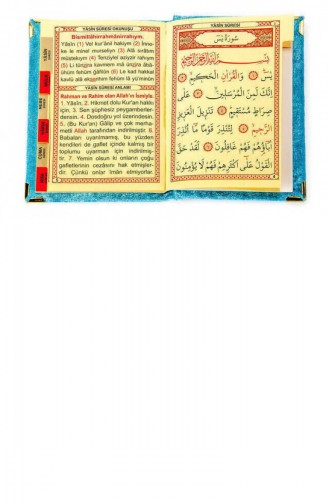 YÂSİN SÛRESİ OKUNUŞU
Bismillâhirrahmânirrahıym.
Yâsîn (1) Vel kur'ânil hakiym (2) İnne-
ke le minel murseliyn (3) Alâ sırâtım
müstekıym (4) Tenziylel aziyzir rahıym
(5) Li tünzira kavmem mâ ünzira âbâ-
ühüm fehüm ğâfilûn (6) Le kad hakkal
kavlü alâ ekserihim fehüm lâ yü'minûn
YÂSİN SÛRESİ ANLAMI
Rahman ve Rahim olan Allah'ın ismiyle.
1. Yâsîn, 2. Hikmet dolu Kur'an hakkı
için, 3. Sen şüphesiz peygamberler-
densin. 4. Dosdoğru yol üzerindesin.
5. (Bu Kur'an) Gâlip ve çok merha-
metli Allah tarafından indirilmiştir. 6.
Babaları uyarılmamış, bu yüzden
kendileri de gaflet içinde kalmış bir
toplumu uyarman için indirilmiş-
tir. 7. Yemin olsun ki onların çoğu
gafletlerinin cezâsını hak etmişler-
dir. Çünkü onlar îmân etmiyorlar.
YÂSİN SÛRESİ
سُورَةُ يٰسٓ
بِسْمِ اللّٰهِ الرَّحْمٰنِ الرَّحِيمِ
يٰسٓ ۝ وَالْقُرْاٰنِ الْحَكِيمِ ۝
اِنَّكَ لَمِنَ الْمُرْسَلِينَ ۝ عَلٰى
صِرَاطٍ مُسْتَقِيمٍ ۝ تَنْزِيلَ الْعَزِيزِ
الرَّحِيمِ ۝ لِتُنْذِرَ قَوْمًا مَٓا اُنْذِرَ
اٰبَٓاؤُ۬هُمْ فَهُمْ غَافِلُونَ ۝ لَقَدْ حَقَّ
الْقَوْلُ عَلٰٓى اَكْثَرِهِمْ فَهُمْ لَا يُؤْمِنُونَ